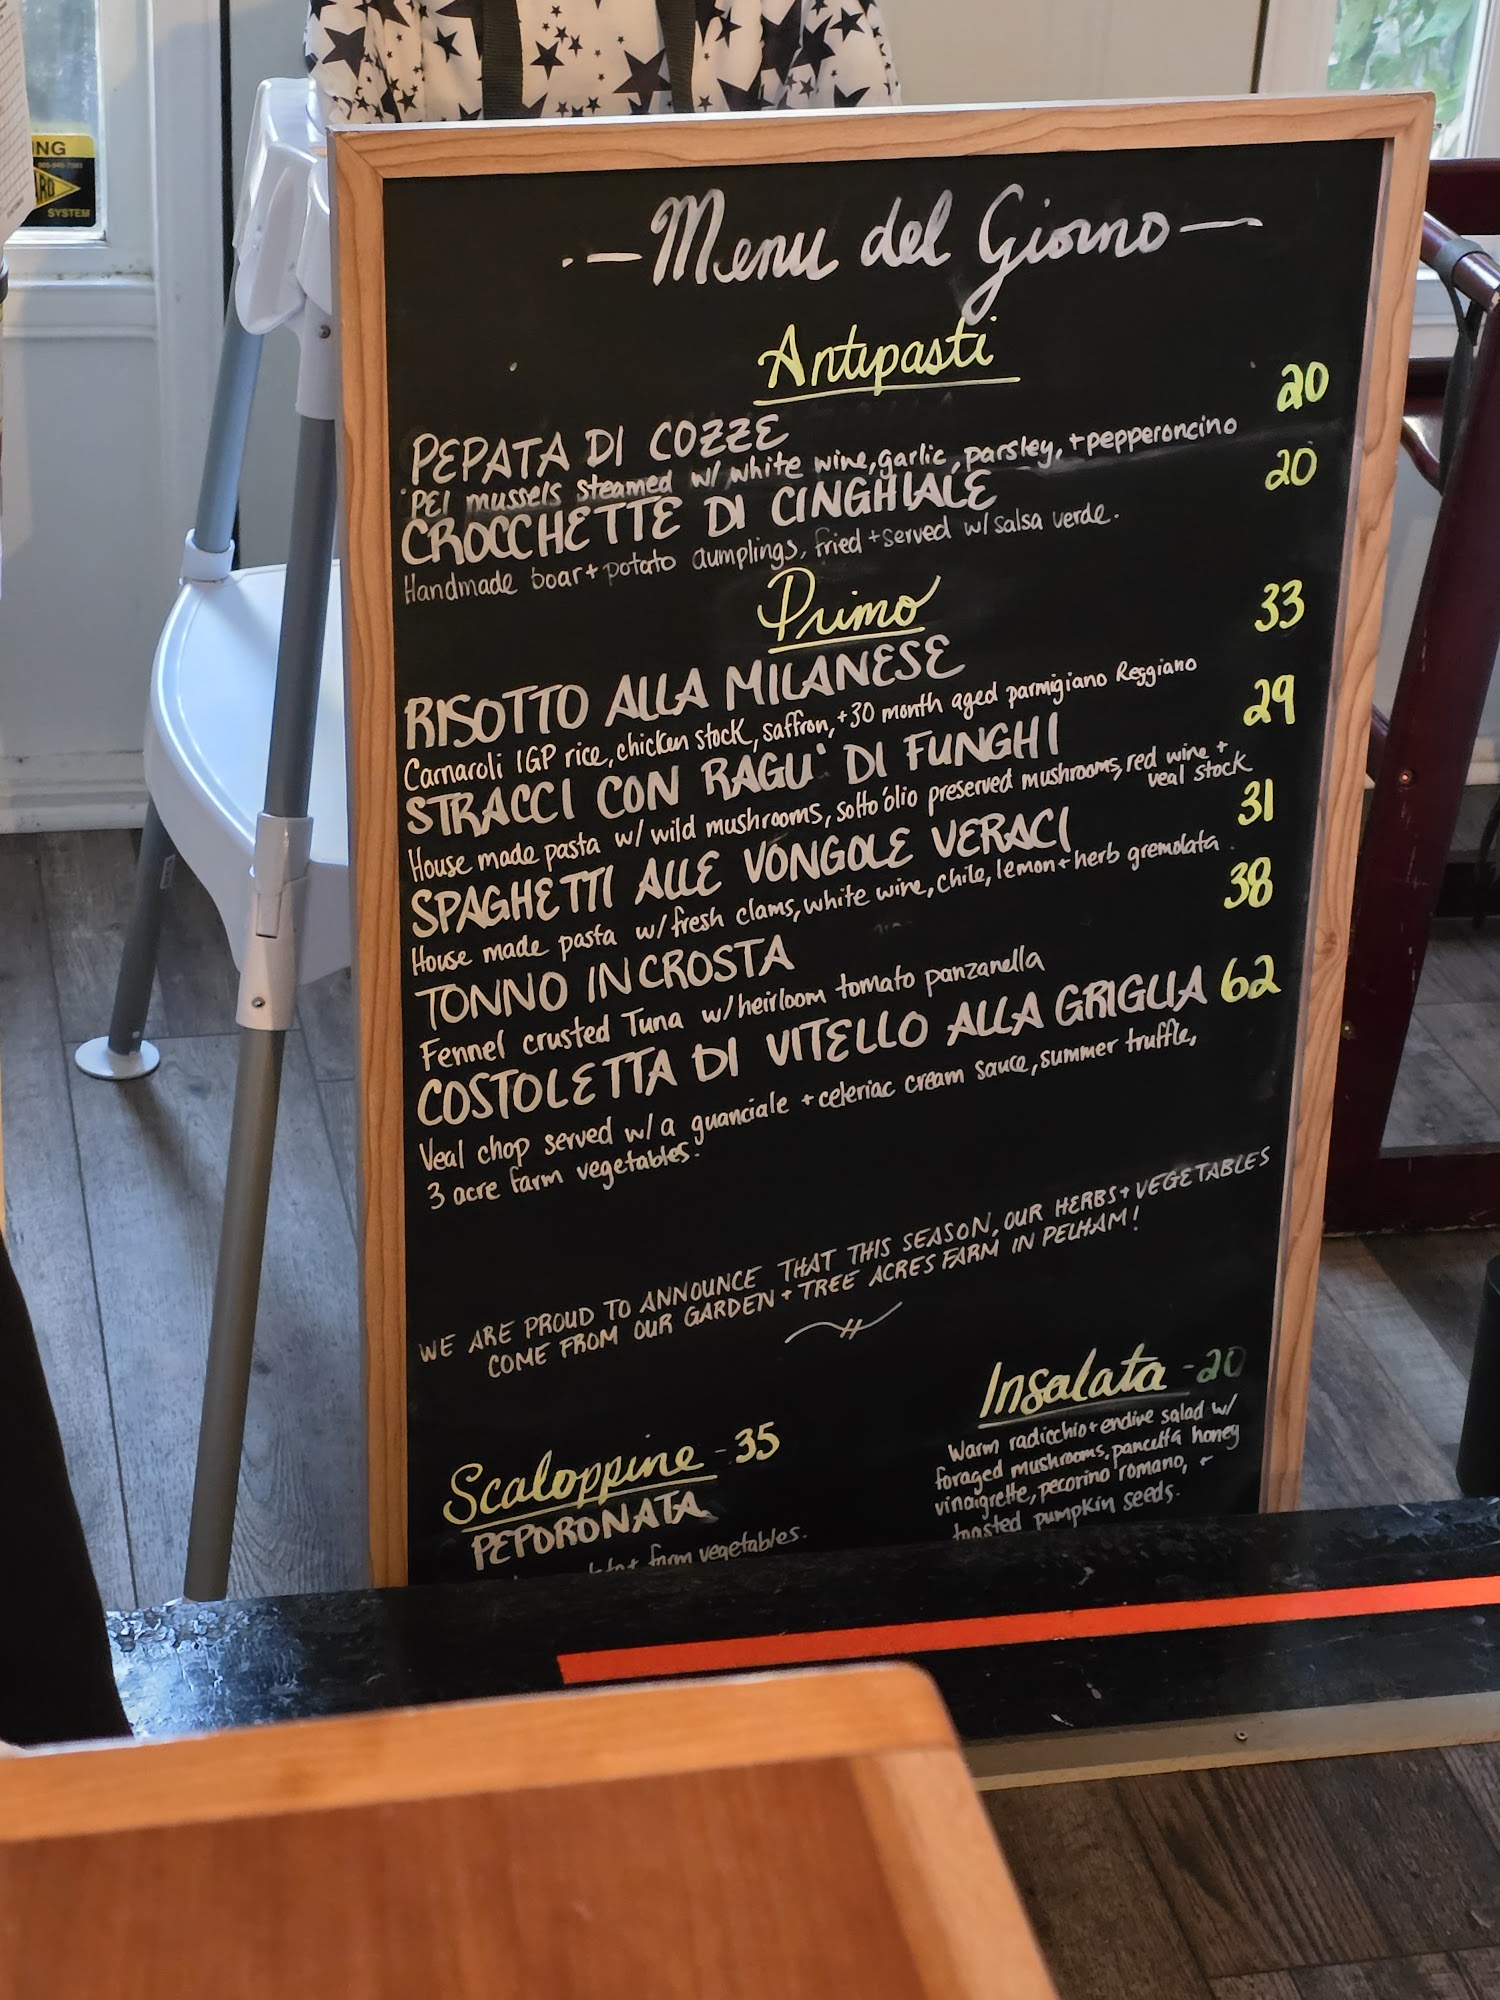 NG
SYSTEM
Menu del Giorno
Antipasti
PEPATA DI COZZE 20
PEI mussels steamed w/ white wine, garlic, parsley, + pepperoncino
CROCCHETTE DI CINGHIALE 20
Handmade boar + potato dumplings, fried + served w/ salsa verde.
Primo
RISOTTO ALLA MILANESE 33
Carnaroli IGP rice, chicken stock, saffron, + 30 month aged parmigiano Reggiano
STRACCI CON RAGU' DI FUNGHI 29
House made pasta w/ wild mushrooms, sotto'olio preserved mushrooms, red wine +
veal stock
SPAGHETTI ALLE VONGOLE VERACI 31
House made pasta w/ fresh clams, white wine, chile, lemon + herb gremolata.
TONNO IN CROSTA 38
Fennel crusted Tuna w/ heirloom tomato panzanella
COSTOLETTA DI VITELLO ALLA GRIGLIA 62
Veal chop served w/ a guanciale + celeriac cream sauce, summer truffle,
3 acre farm vegetables.
WE ARE PROUD TO ANNOUNCE THAT THIS SEASON, OUR HERBS + VEGETABLES
COME FROM OUR GARDEN + TREE ACRES FARM IN PELHAM!
Scaloppine - 35
PEPORONATA
farm vegetables.
Insalata - 20
Warm radicchio + endive salad w/
foraged mushrooms, pancetta honey
vinaigrette, pecorino romano, +
toasted pumpkin seeds.